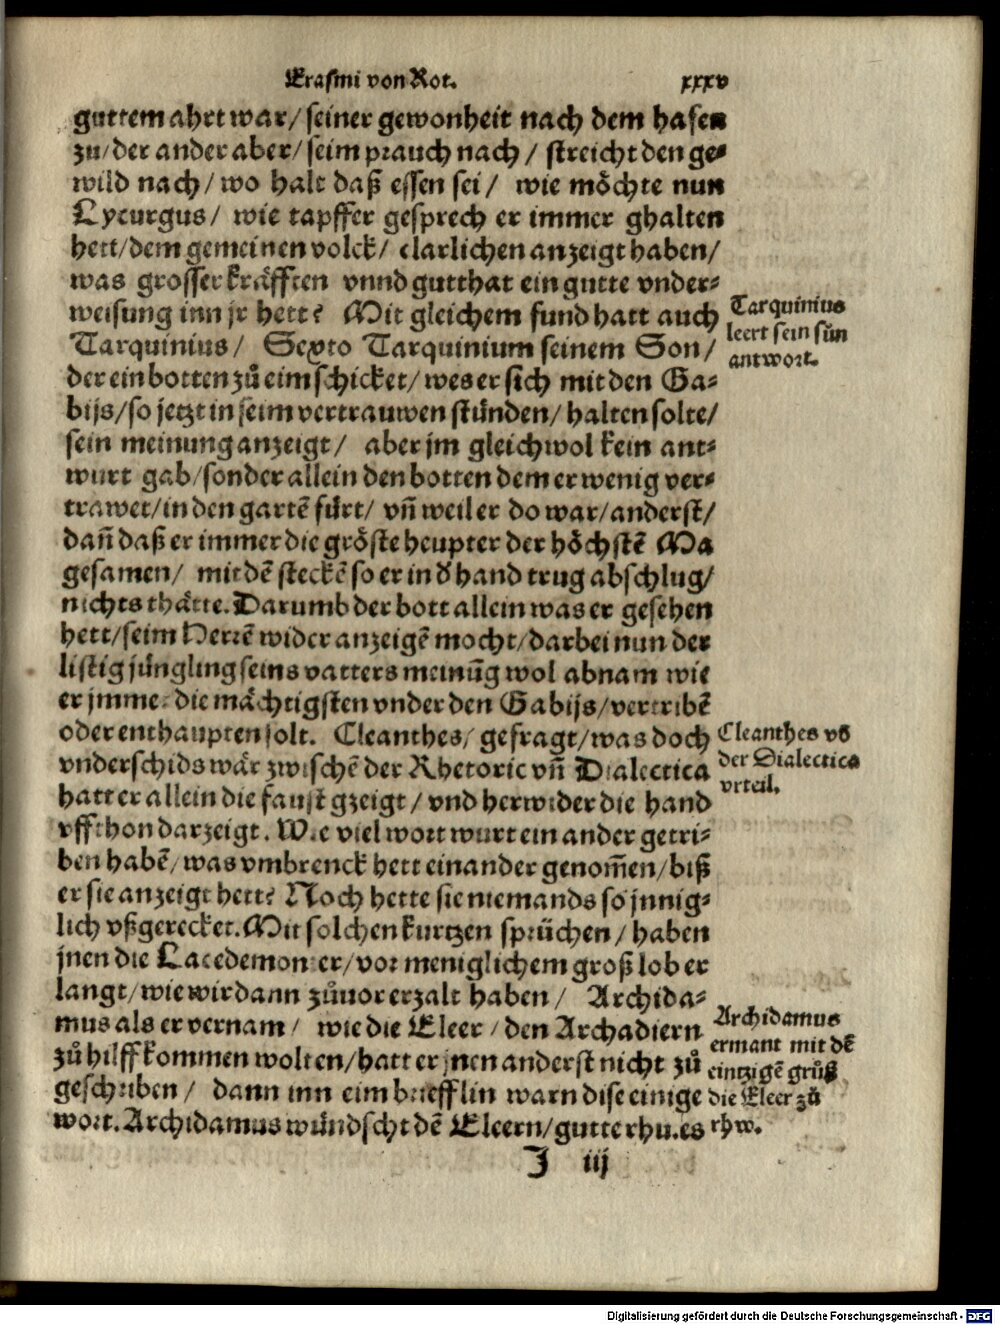 Erasmi von Rot. xxxv
guttem ahrt war/ seiner gewonheit nach dem hafen
zu/ der ander aber/ seim prauch nach/ streicht den ge⸗
wild nach/ wo halt daß essen sei/ wie möchte nun
Lycurgus/ wie tapffer gesprech er immer ghalten
hett/ dem gemeinen volck/ clarlichen anzeigt haben/
was grosser kräfften vnnd gutthat ein gutte vnder⸗
weisung inn jr hett? Mit gleichem fund hatt auch
Tarquinius/ Sexto Tarquinium seinem Son/
der ein botten zů eim schicket/ wes er sich mit den Ga⸗
bijs/ so jetzt in seim vertrauwen stünden/ halten solte/
sein meinung anzeigt/ aber jm gleichwol kein ant⸗
wurt gab/ sonder allein den botten dem er wenig ver⸗
trawet/ in den gartē fürt/ vñ weil er do war/ anderst/
dañ daß er immer die gröste heupter der höchstē Ma
gesamen/ mit dē steckē so er in d̕ hand trug abschlug/
nichts thätte. Darumb der bott allein was er gesehen
hett/ seim Herrē wider anzeigē mocht/ darbei nun der
listig jüngling seins vatters meinūg wol abnam wie
er jmmer die mächtigsten vnder den Gabijs/ vertribē
oder enthaupten solt. Cleanthes/ gefragt/ was doch
vnderschids wär zwischē der Rhetoric vñ Dialectica
hatt er allein die faust gzeigt/ vnd herwider die hand
vffthon darzeigt. Wie viel wort wurt ein ander getri⸗
ben habē/ was vmbrenck hett ein ander genom̄en/ biß
er sie anzeigt hett? Noch hette sie niemands so jnnig⸗
lich vßgerecket. Mit solchen kurtzen sprüchen/ haben
jnen die Lacedemonier/ vor meniglichem groß lob er
langt/ wie wir dann zůuor erzalt haben/ Archida⸗
mus als er vernam/ wie die Eleer/ den Archadiern
zů hilff kommen wolten/ hatt er jnen anderst nicht zů
geschriben/ dann inn eim briefflin warn dise einige
wort. Archidamus wündscht dē Eleern/ gutte rhu. es
J iij
Tarquinius
leert sein sün
antwort.
Cleanthes vō
der Dialectica
vrteil.
Archidamus
ermant mit dē
eintzigē grůß
die Eleer zů
rhw.
Digitalisierung gefördert durch die Deutsche Forschungsgemeinschaft - DFG